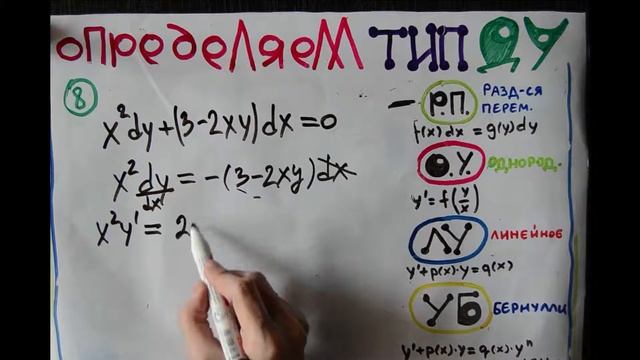 определяем тип ДУ
8
x²dy+(3-2xy)dx=0
x² dy/dx = -(3-2xy)dx
x²y' = 2
Р.П. РАЗД-СЯ ПЕРЕМ.
f(x)dx = g(y)dy
О.У. ОДНОРОД.
y' = f(y/x)
ЛУ ЛИНЕЙНОЕ
y'+p(x)·y=q(x)
УБ БЕРНУЛЛИ
y'+p(x)·y=q(x)·yⁿ